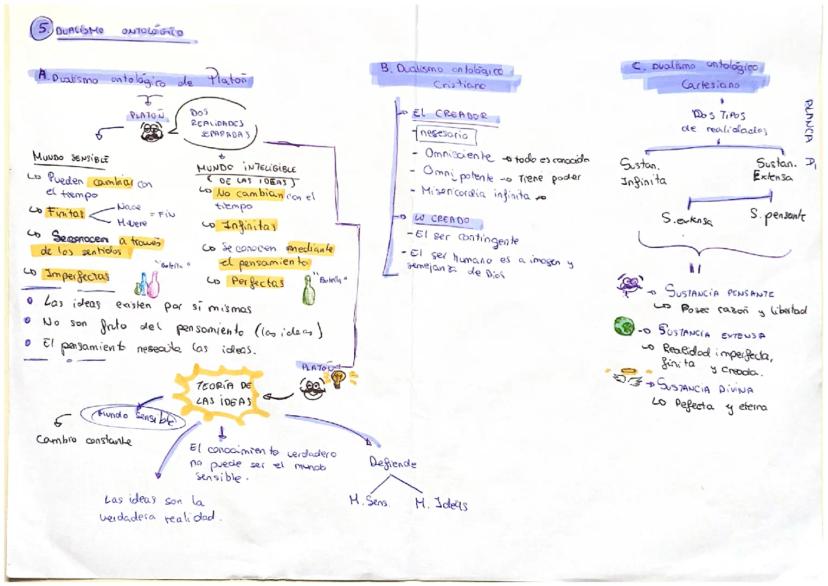 5. DUALISMO ONTOLÓGICO
A. Dualismo ontológico de Platón
PLATÓN
DOS
REALIDADES
SEPARADAS
MUNDO SENSIBLE
Pueden cambiar con
el tiempo
Finitas
Nace
Muere
= FIN
Se conocen a través
de los sentidos
Imperfectas
"Botella"
MUNDO INTELIGIBLE
(DE LAS IDEAS)
No cambian con el
tiempo
Infinitas
Se conocen mediante
el pensamiento
Perfectas
"Botella"
Las ideas existen por sí mismas
No son fruto del pensamiento (las ideas)
El pensamiento necesita las ideas.
PLATÓN
TEORÍA DE
LAS IDEAS
Mundo sensible
Cambio constante
Las ideas son la
verdadera realidad.
El conocimiento verdadero
no puede ser el mundo
sensible.
Defiende
M. Sens.
M. Ideas
B. Dualismo ontológico
Cristiano
EL CREADOR
necesario
- Omnisciente → todo es conocido
- Omnipotente → Tiene poder
- Misericordia infinita
LO CREADO
- El ser contingente
- El ser humano es a imagen y
semejanza de Dios
C. Dualismo ontológico
Cartesiano
Dos TIPOS
de realidades
Sustan.
Infinita
Sustan.
Extensa
S. extensa
S. pensante
SUSTANCIA PENSANTE
Posee razón y libertad
SUSTANCIA EXTENSA
Realidad imperfecta,
finita y creada.
SUSTANCIA DIVINA
Perfecta y eterna
BLANCA